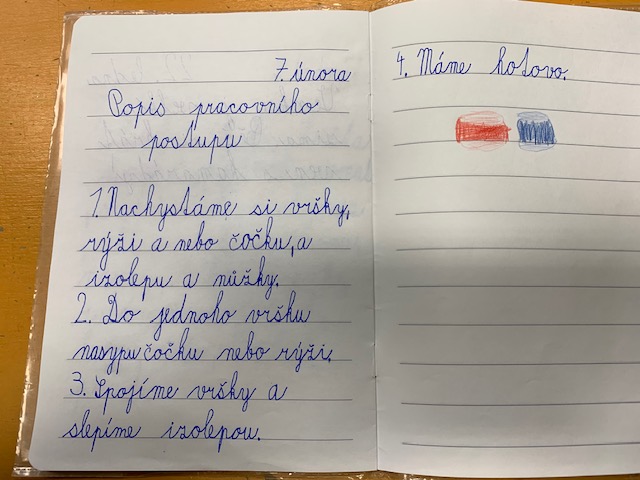 7. února
Popis pracovního
postupu
1. Nachystáme si vršky,
rýži a nebo čočku, a
izolepu a nůžky.
2. Do jednoho vršku
nasypu čočku nebo rýži.
3. Spojíme vršky a
slepíme izolepou.
4. Máme hotovo.